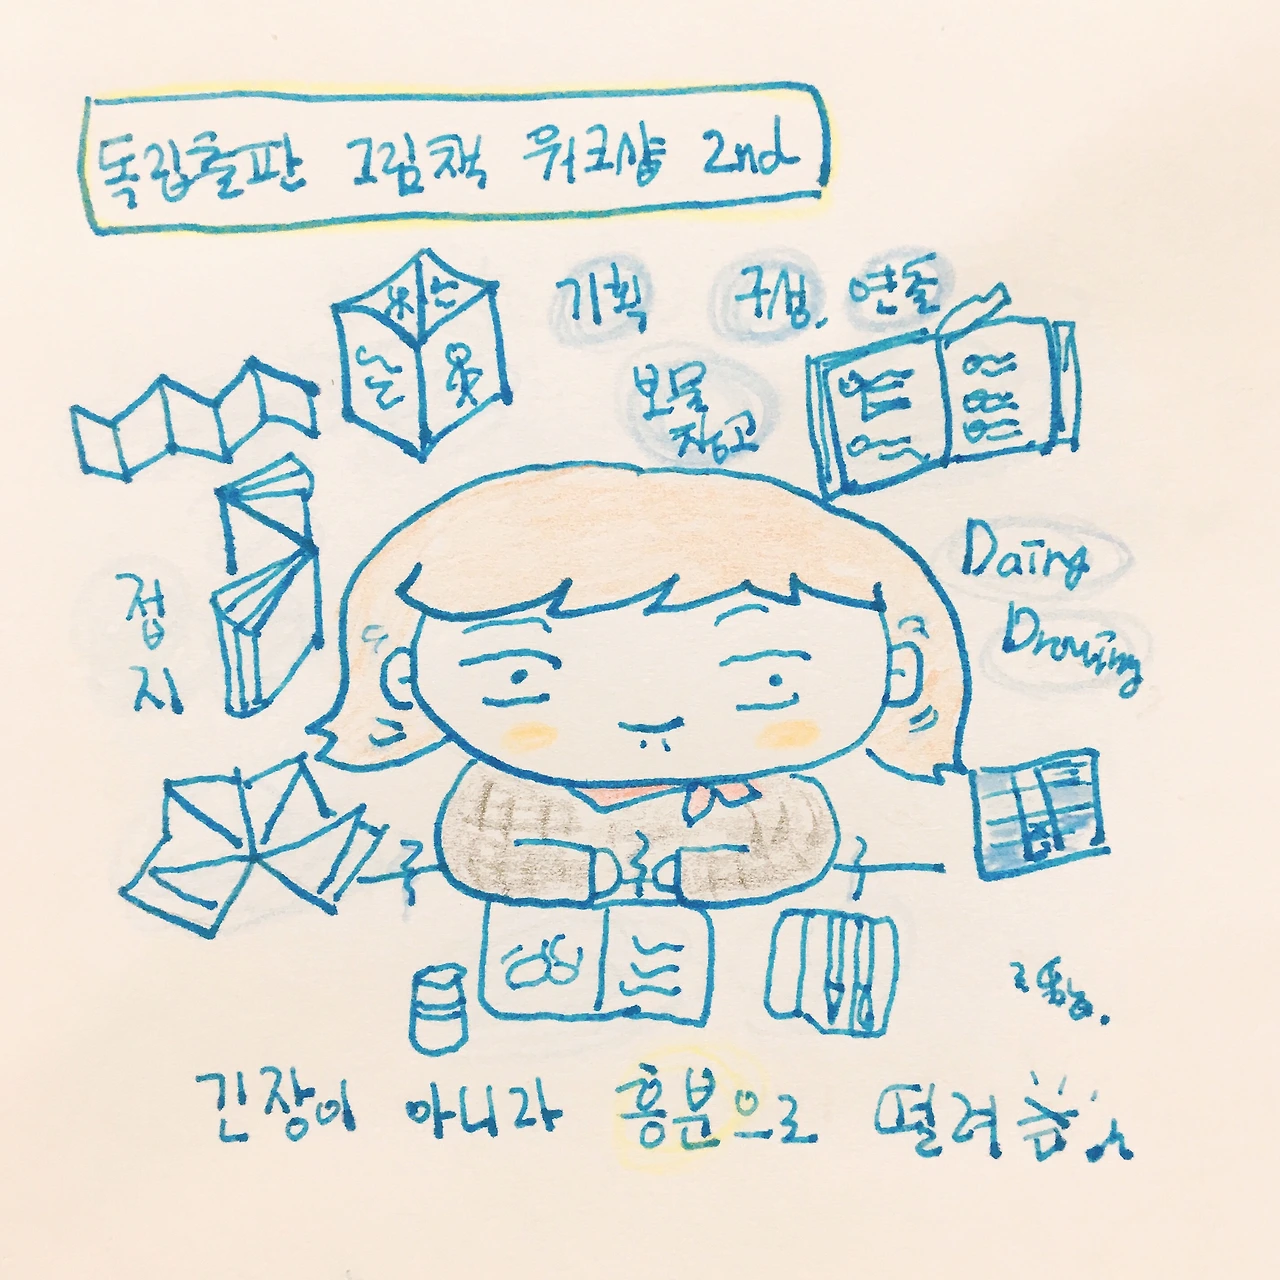 독립출판 그림책 워크샵 2nd
기획 구성, 연출
보물
창고
접
지
Daing
Drowing
긴장이 아니라 흥분으로 떨려움